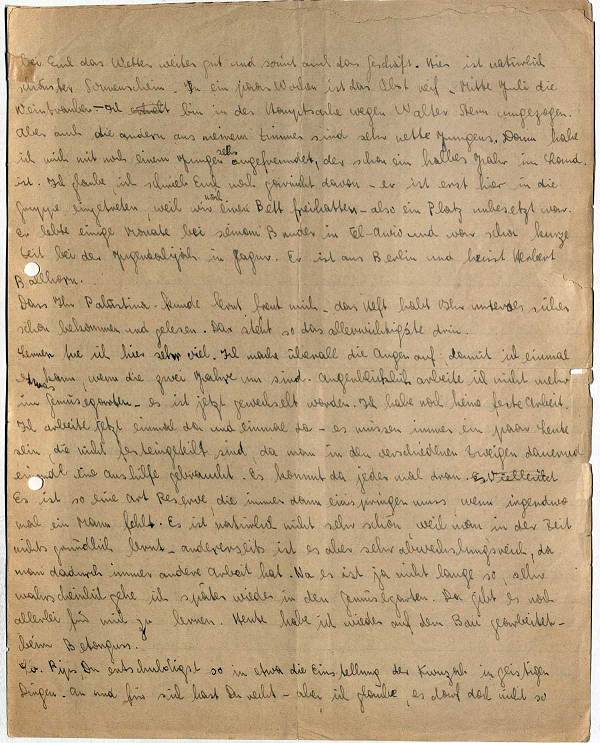 bei Euch das Wetter weiter gut und somit auch das Geschäft. Hier ist natürlich
Sonnenschein. In ein paar Wochen ist das Obst reif. Mitte Juli die
Weintrauben. Ich bin in der Hauptsache wegen Walter Stern umgezogen.
Aber auch die andern aus meinem Zimmer sind sehr nette Jungens. Dann habe
ich mich mit noch einem Jungen sehr angefreundet, der schon ein halbes Jahr im Land
ist. Ich glaube ich schrieb Euch noch nicht davon - er ist erst hier in die
Gruppe eingetreten, weil wir noch einen Bett freihatten - also ein Platz unbesetzt war.
Er lebte einige Monate bei seinem Bruder in Tel-Awiv und war schon kurze
Zeit bei der Jugendalijah in Jagur. Er ist aus Berlin und heisst Herbert
Ballhorn.
Dass Ihr Palästina-kunde lernt freut mich - das Heft habt Ihr
schon bekommen und gelesen. Da steht so das allerwichtigste drin.
Lernen tue ich hier sehr viel. Ich mache überall die Augen auf damit ich einmal
etwas kann, wenn die zwei Jahre um sind. Augenblicklich arbeite ich nicht mehr
im Gemüsegarten - es ist jetzt gewechselt worden. Ich habe noch keine feste Arbeit.
Ich arbeite jetzt einmal da und einmal da - es müssen immer ein paar Leute
sein die nicht festeingeteilt sind, da man in den verschiedenen Zweigen dauernd
eine Aushilfe gebraucht. Es kommt da jedes mal dran
Es ist so eine Art Reserve, die immer dann einspringen muss wenn irgendwo
mal ein Mann fehlt. Es ist natürlich nicht sehr schön, weil man in der Zeit
nichts gründlich lernt - andererseits ist es aber sehr abwechslungsreich, da
man dadurch immer andere Arbeit hat. Na es ist ja nicht lange so, sehr
wahrscheinlich gehe ich später wieder in den Gemüsegarten. Da gibt es noch
allerlei für mich zu lernen. Heute habe ich wieder auf dem Bau gearbeitet -
beim Betonguss.
Du entschuldigst so in etwa die Einstellung der Kwuzah in geistigen
Dingen. An und für sich hast Du recht - aber ich glaube, es darf doch nicht so